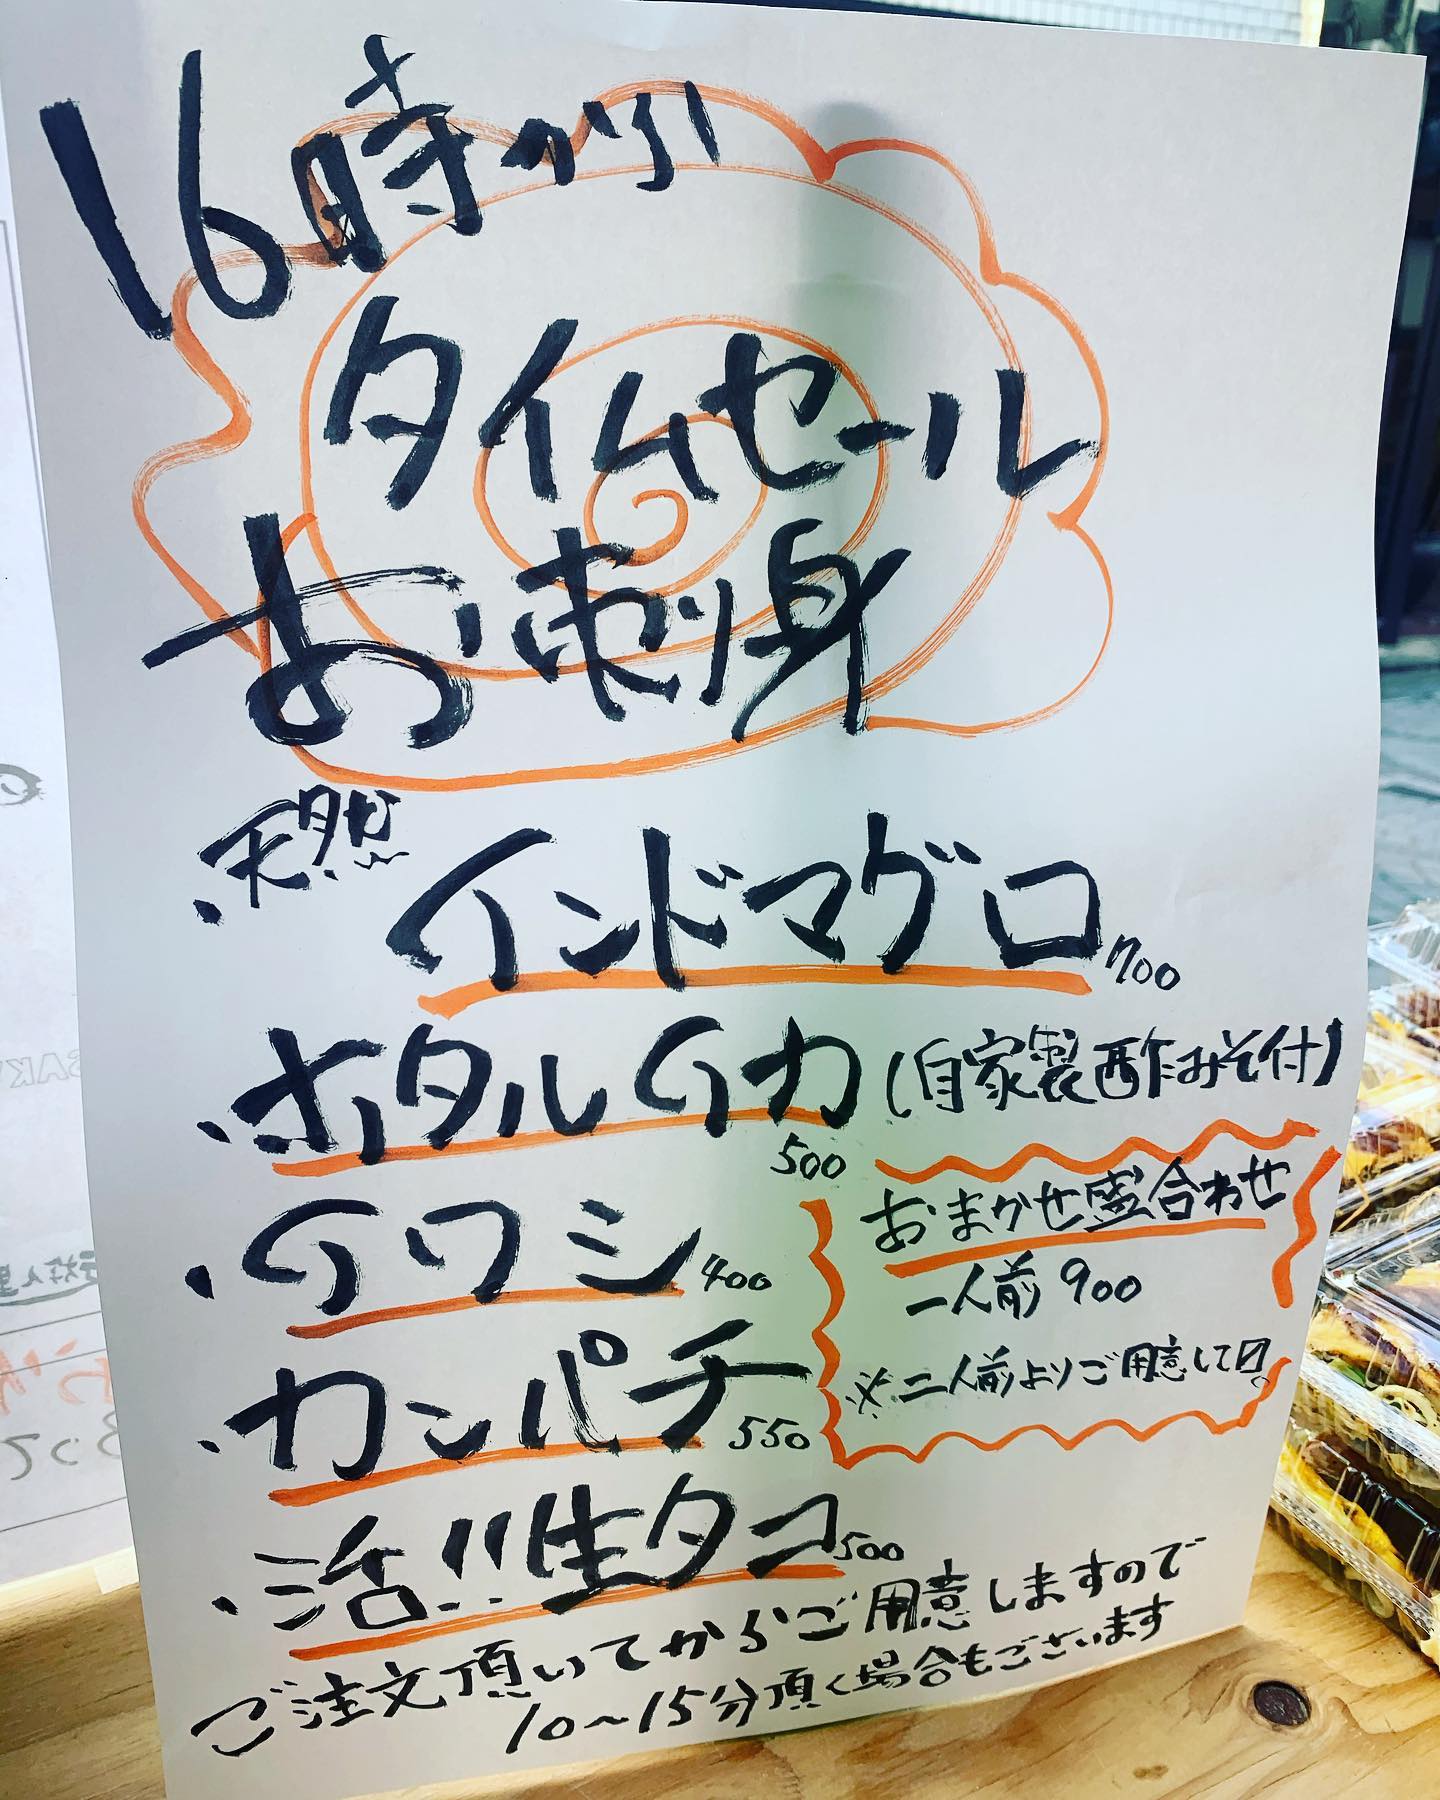 16時から!
タイムセール
お刺身
・天然
インドマグロ 700
・ホタルイカ(自家製酢みそ付)
500
・イワシ 400
おまかせ盛合わせ
一人前 900
※二人前よりご用意して〼。
・カンパチ 550
・活!!生タコ 500
ご注文頂いてからご用意しますので
10〜15分頂く場合もございます